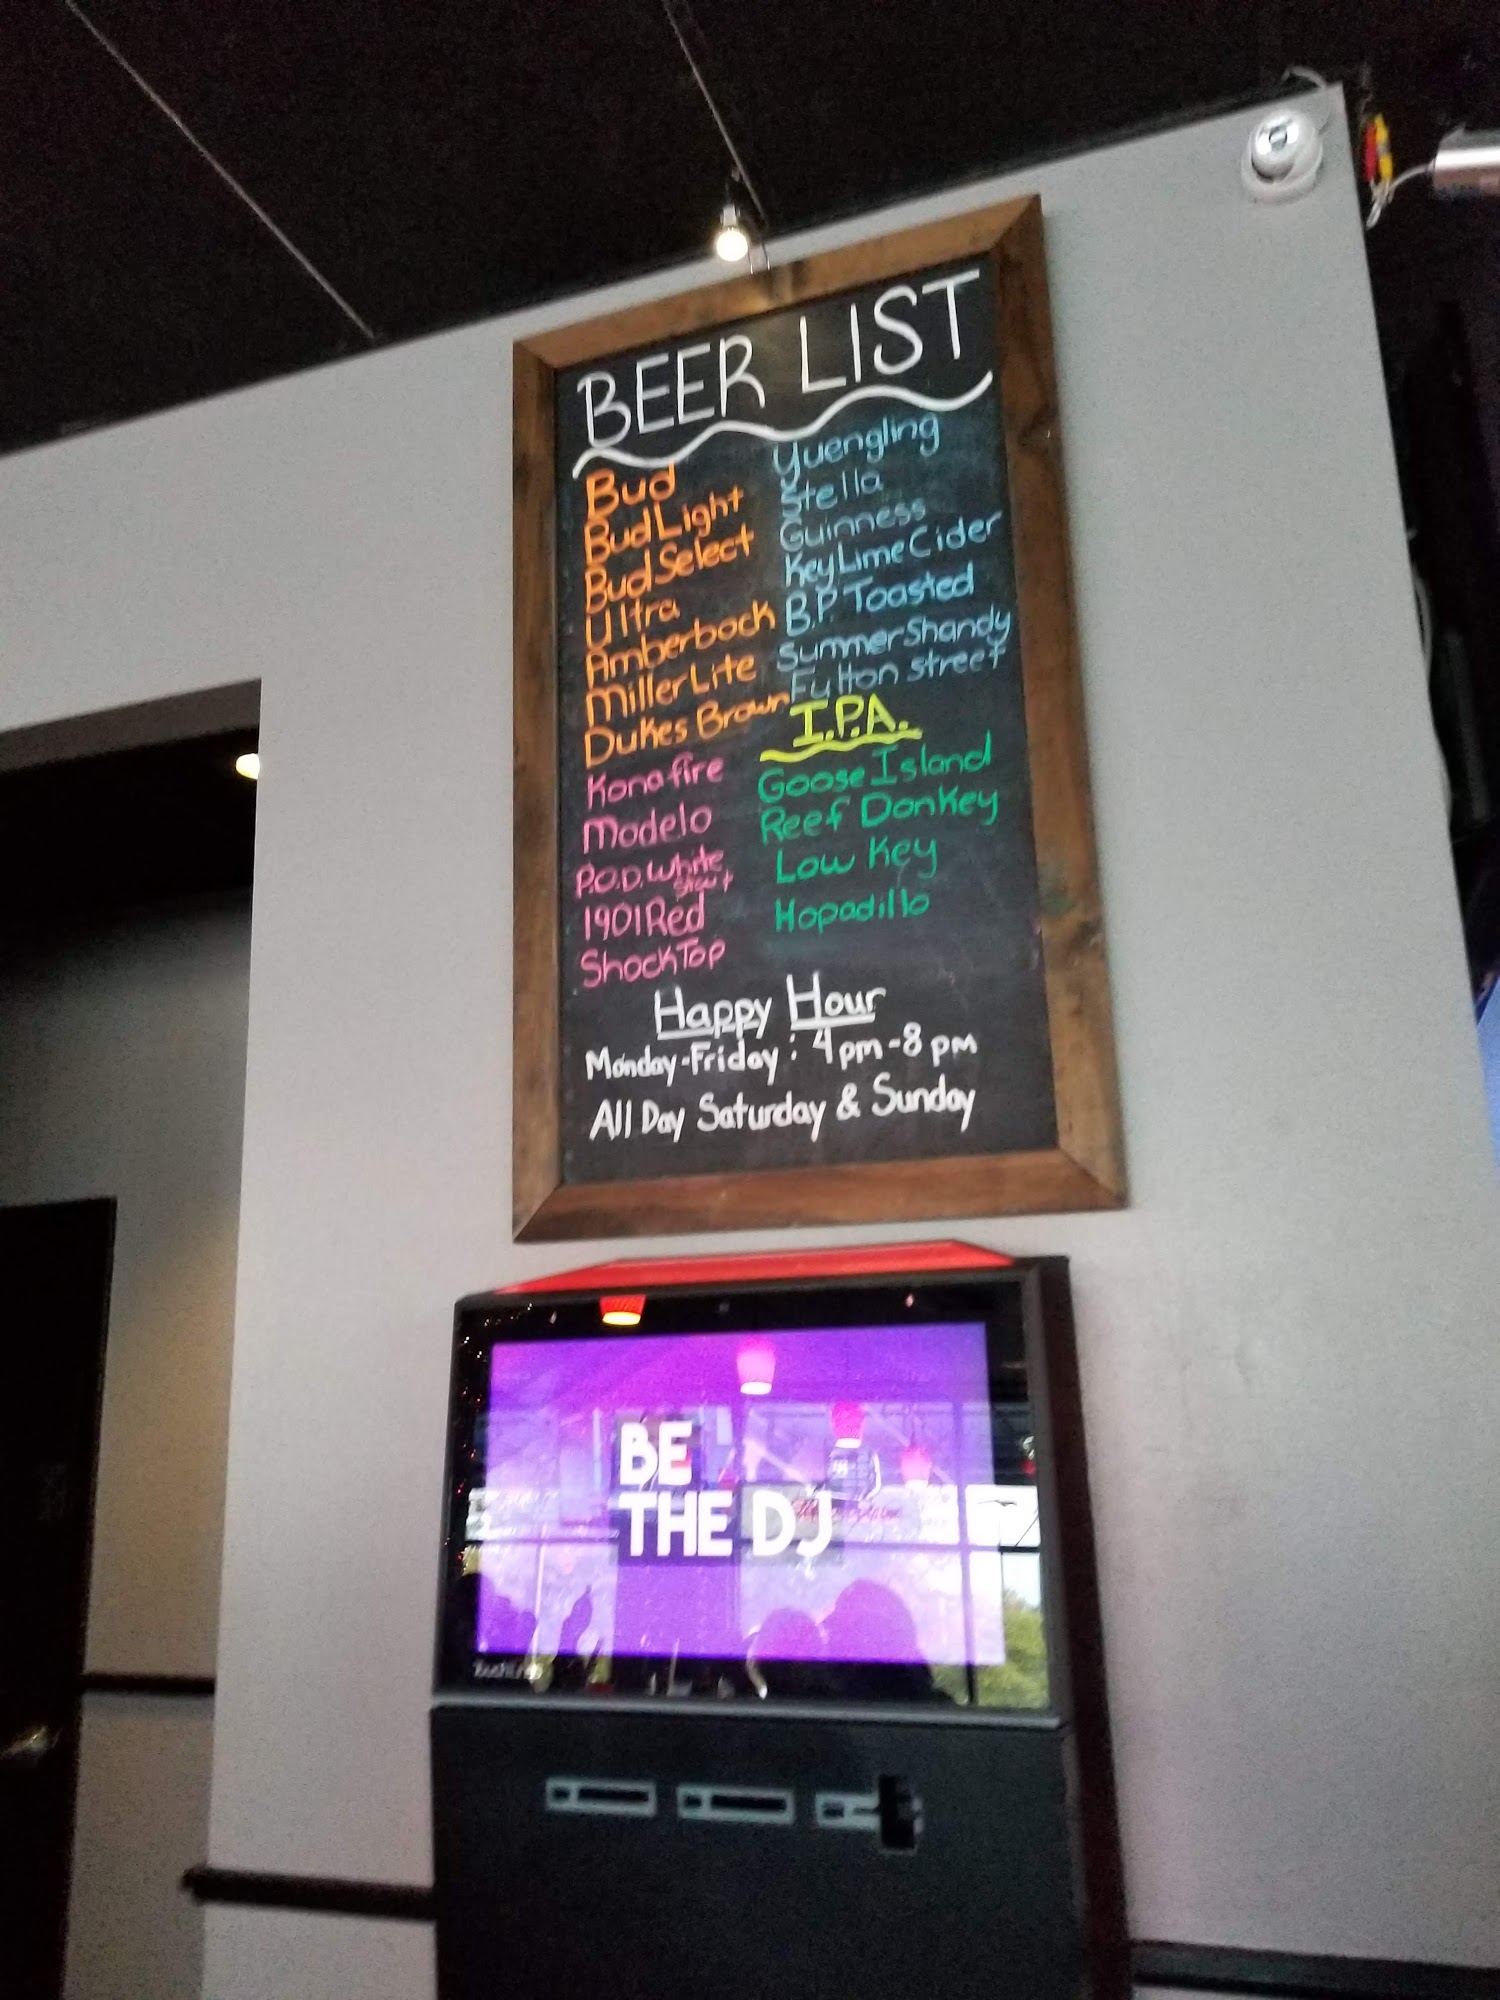 BEER LIST
Bud
Bud Light
Bud Select
Ultra
Amberbock
Miller Lite
Dukes Brown
Kona fire
Modelo
P.O.D. White
Stout
1901 Red
ShockTop
Yuengling
Stella
Guinness
Key Lime Cider
B.P. Toasted
Summer Shandy
Fulton street
I.P.A.
Goose Island
Reef Donkey
Low Key
Hopadillo
Happy Hour
Monday-Friday: 4pm-8pm
All Day Saturday & Sunday
BE
THE DJ